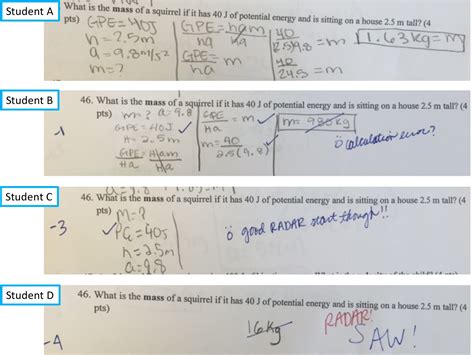 Student A
What is the mass of a squirrel if it has 40 J of potential energy and is sitting on a house 2.5 m tall? (4
pts)
GPE=40J
h=2.5m
a=9.8m/s²
m=?
GPE=ham
ha ha
GPE = m
ha
40
2.5(9.8 = m
40
24.5 = m
1.63kg=m
Student B
46. What is the mass of a squirrel if it has 40 J of potential energy and is sitting on a house 2.5 m tall? (4
pts)
-1
m=? a=9.8
GPE=40J
h=2.5m
GPE=Ham
Ha Ha
GPE = m
Ha
m=40
2.5(9.8)
m= kg
calculation error?
Student C
46. What is the mass of a squirrel if it has 40 J of potential energy and is sitting on a house 2.5 m tall? (4
pts)
-3
M=?
PG=40J
h=2.5m
a=9.8
good RADAR start though!!
Student D
46. What is the mass of a squirrel if it has 40 J of potential energy and is sitting on a house 2.5 m tall? (4
pts)
-4
16kg
RADAR!
SAW!